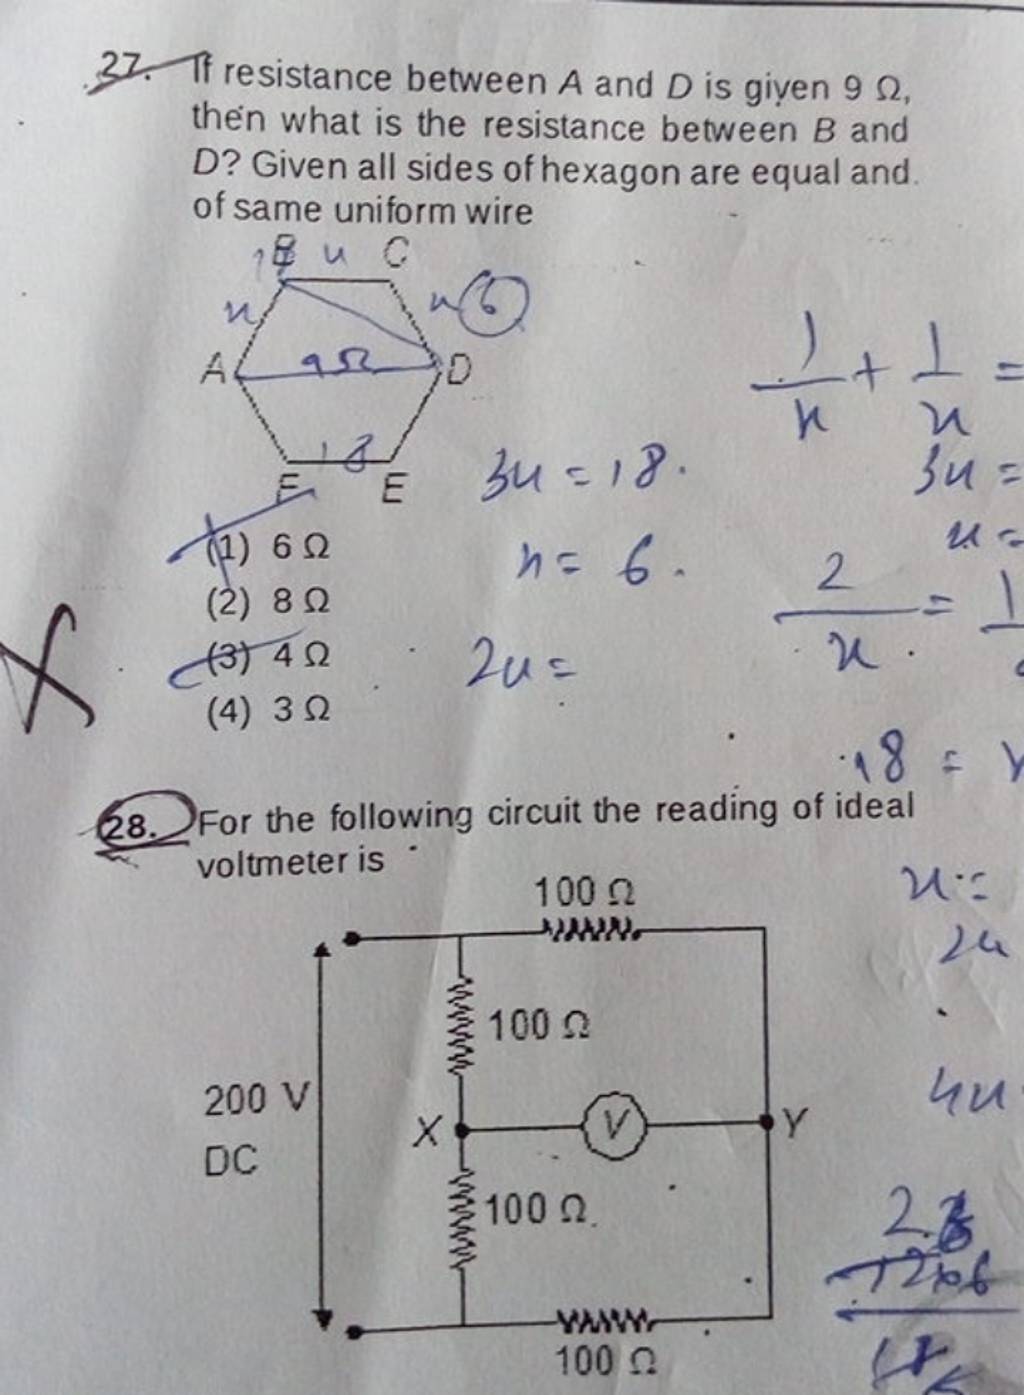 27. If resistance between A and D is given 9 Ω,
then what is the resistance between B and
D? Given all sides of hexagon are equal and
of same uniform wire
B u C
u
u 6
A 9Ω D
18
F E
3u = 18.
u = 6.
2u =
1/u + 1/u =
3u =
u =
2/u = 1
18 =
(1) 6 Ω
(2) 8 Ω
(3) 4 Ω
(4) 3 Ω
28. For the following circuit the reading of ideal
voltmeter is
100 Ω
100 Ω
200 V
DC
X V Y
100 Ω
100 Ω
u =
2u
4u